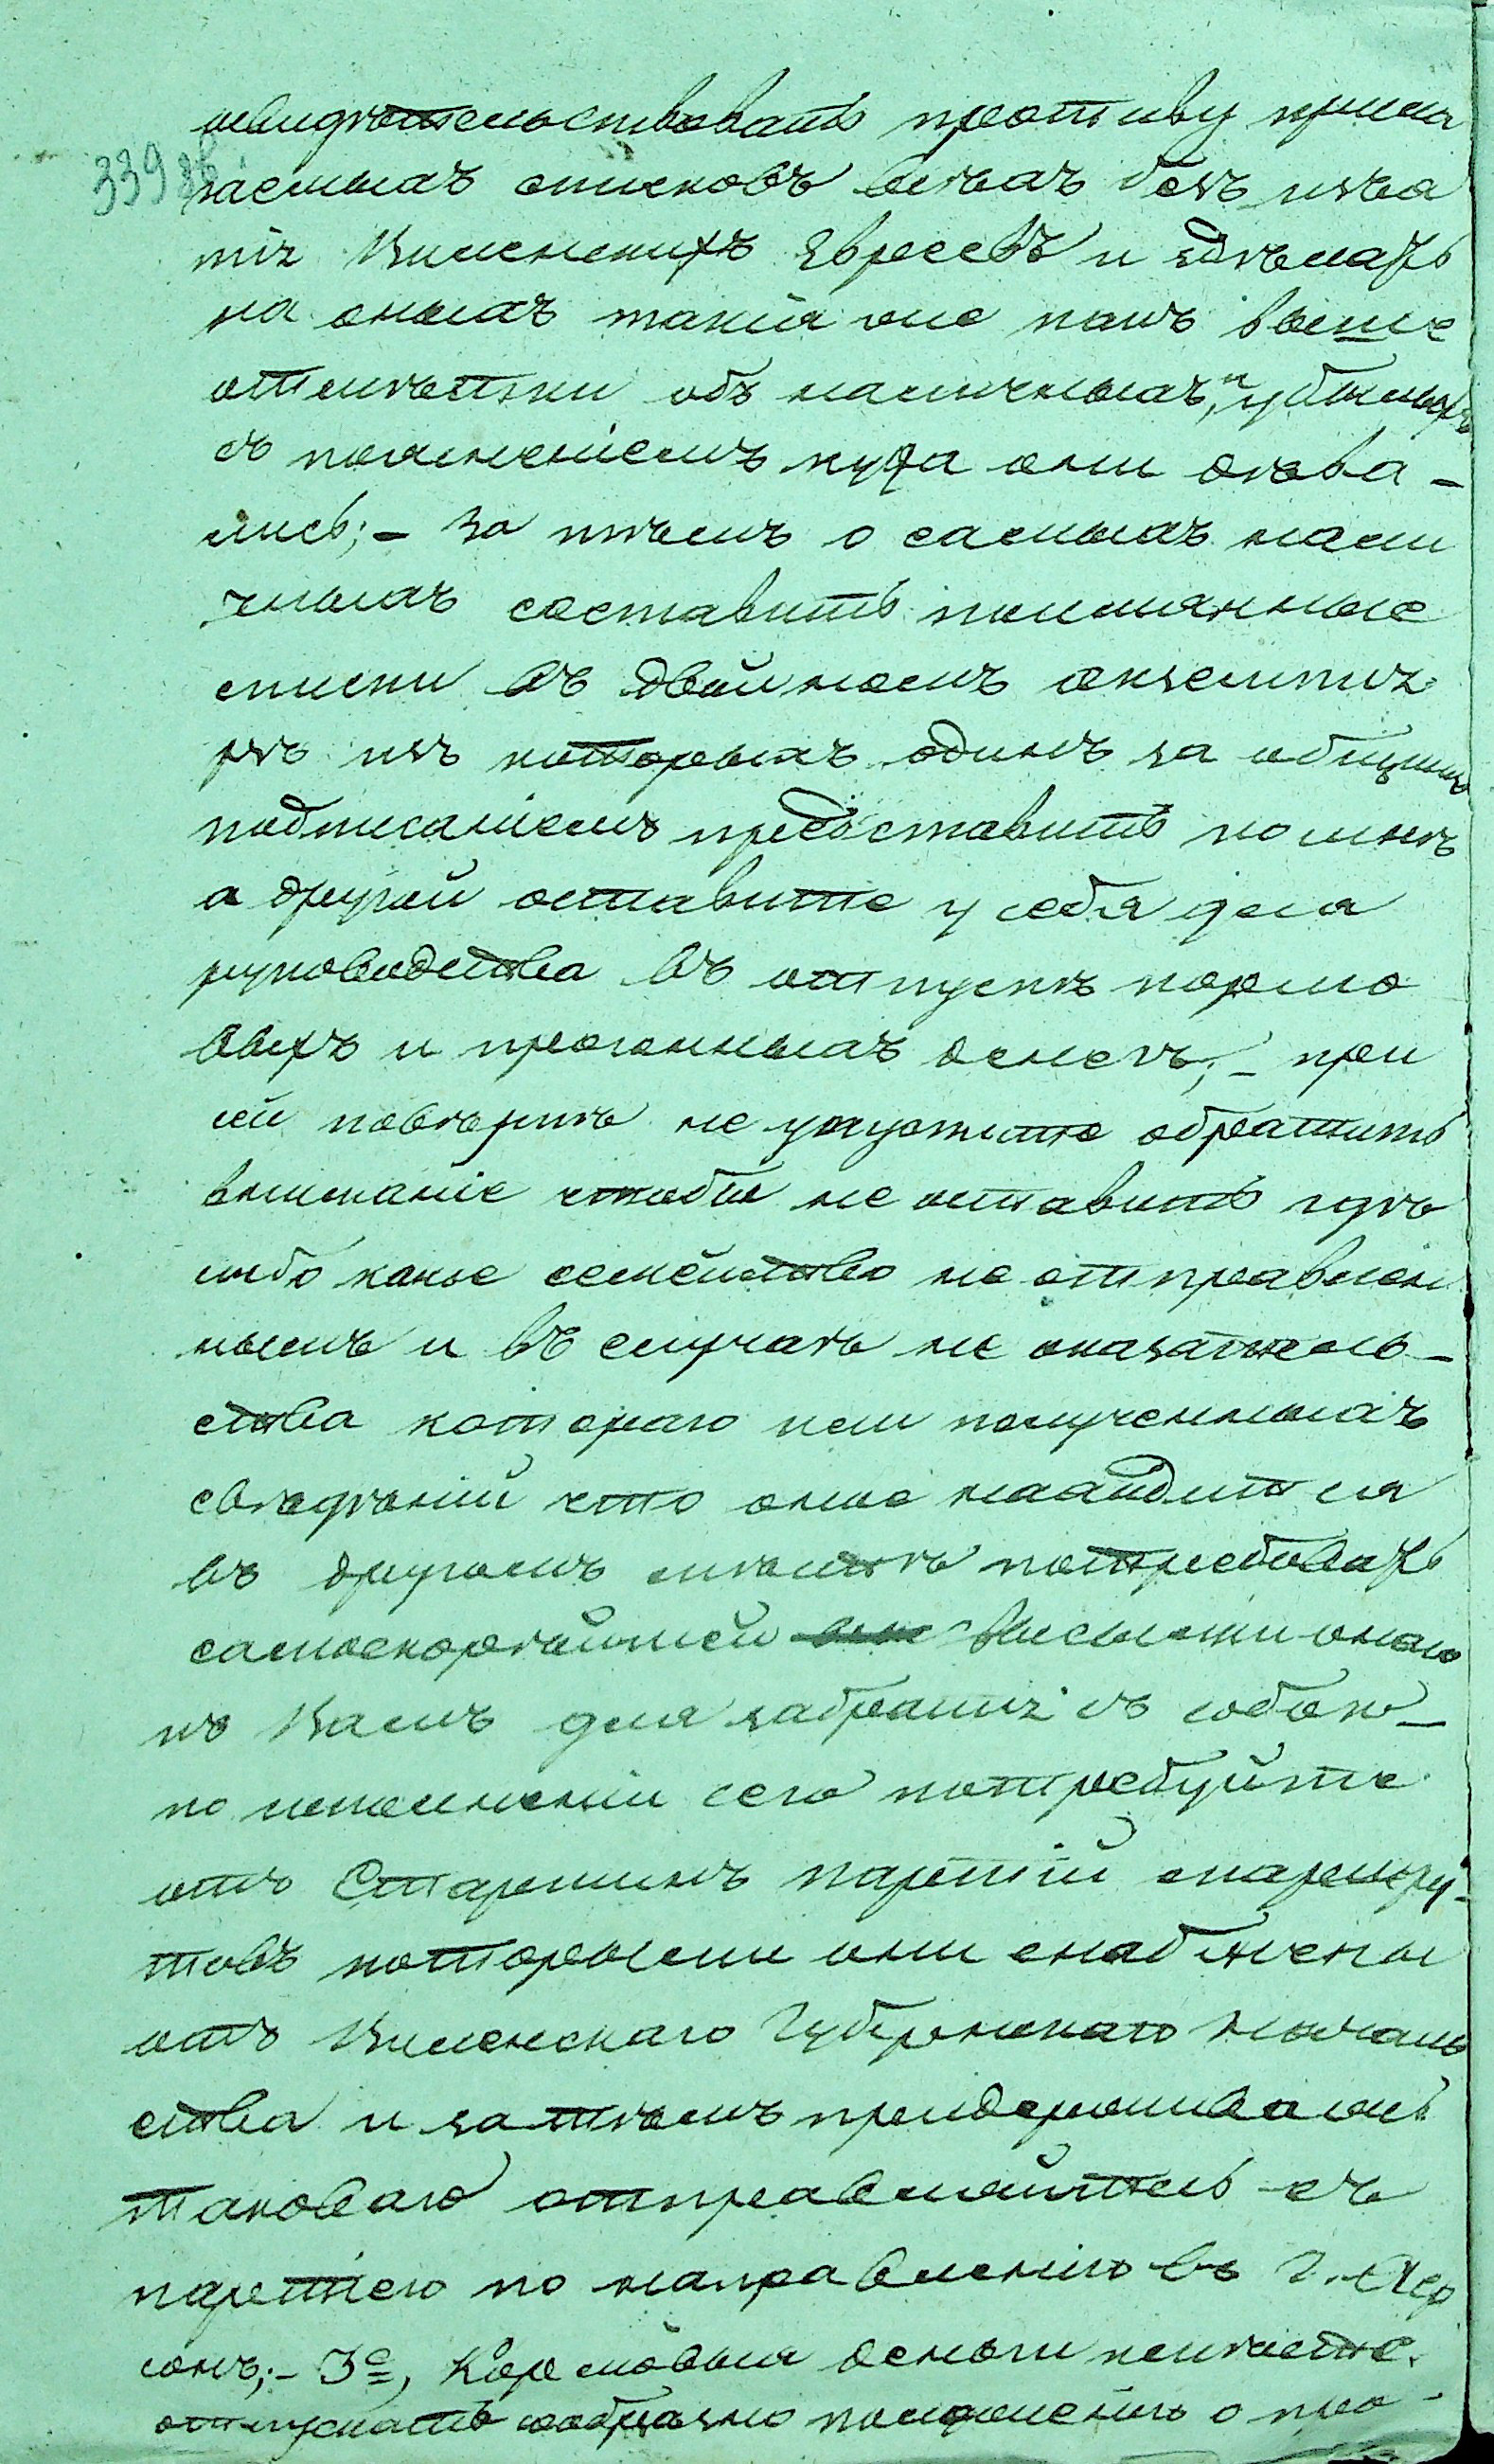 свидѣтельствовать противу прила
339 гаемыхъ списковъ всѣхъ безъ изъя
тія Виленскихъ Евреевъ и здѣлать
на оныхъ такія же какъ выше
отмѣтки объ наличныхъ, и убылыхъ
съ поясненіемъ куда они дѣва-
лись;- За тѣмъ о самыхъ нали
чныхъ составить поимянные
списки въ двойномъ экземпля
рѣ изъ которыхъ одинъ за общимъ
подписаніемъ предоставить ко мнѣ
а другой оставите у себя для
руководства въ отпускѣ кормо
выхъ и прогонныхъ денегъ;- при
сей повѣркѣ не упустите обратить
вниманіе чтобы не оставить гдѣ
либо какое семейство не отправлен
нымъ и въ случаѣ не оказатель-
ства котораго или полученныхъ
свѣдѣній что оное находится
въ другомъ мѣстѣ потребовать
самоскорѣйшей высылки онаго
къ Вамъ для забратія съ собою-
по исполненіи сего потребуйте
отъ Старшинъ партій маршру-
товъ которыми они снабжены
отъ Виленскаго Губернскаго Началь
ства и за тѣмъ придерживаясь
таковаго отправляйтесь съ
партіею по направленію въ г. Хер
сонъ;- 3е, Кормовыя деньги имѣете
отпускать сообразно положенію о про-